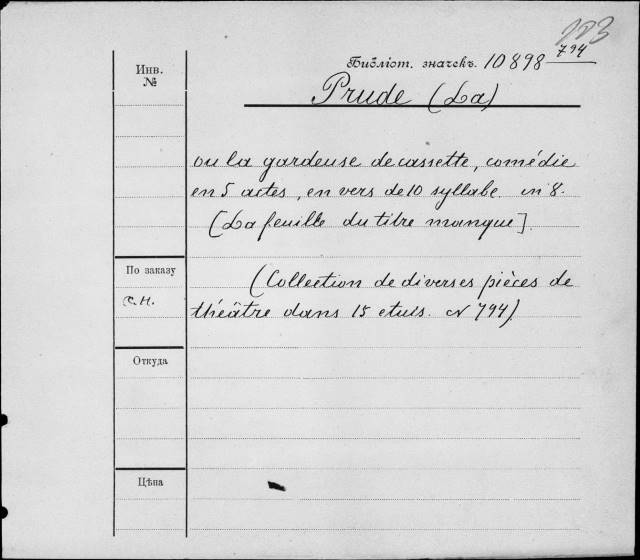 223
Инв.
№
Библіот. значекъ. 10898 794
Prude (La)
ou la gardeuse de cassette, comédie
en 5 actes, en vers de 10 syllabe. in 8.
[La feuille du titre manque].
По заказу
С.Н.
(Collection de diverses pièces de
théâtre dans 15 etuis. N 794).
Откуда
Цѣна